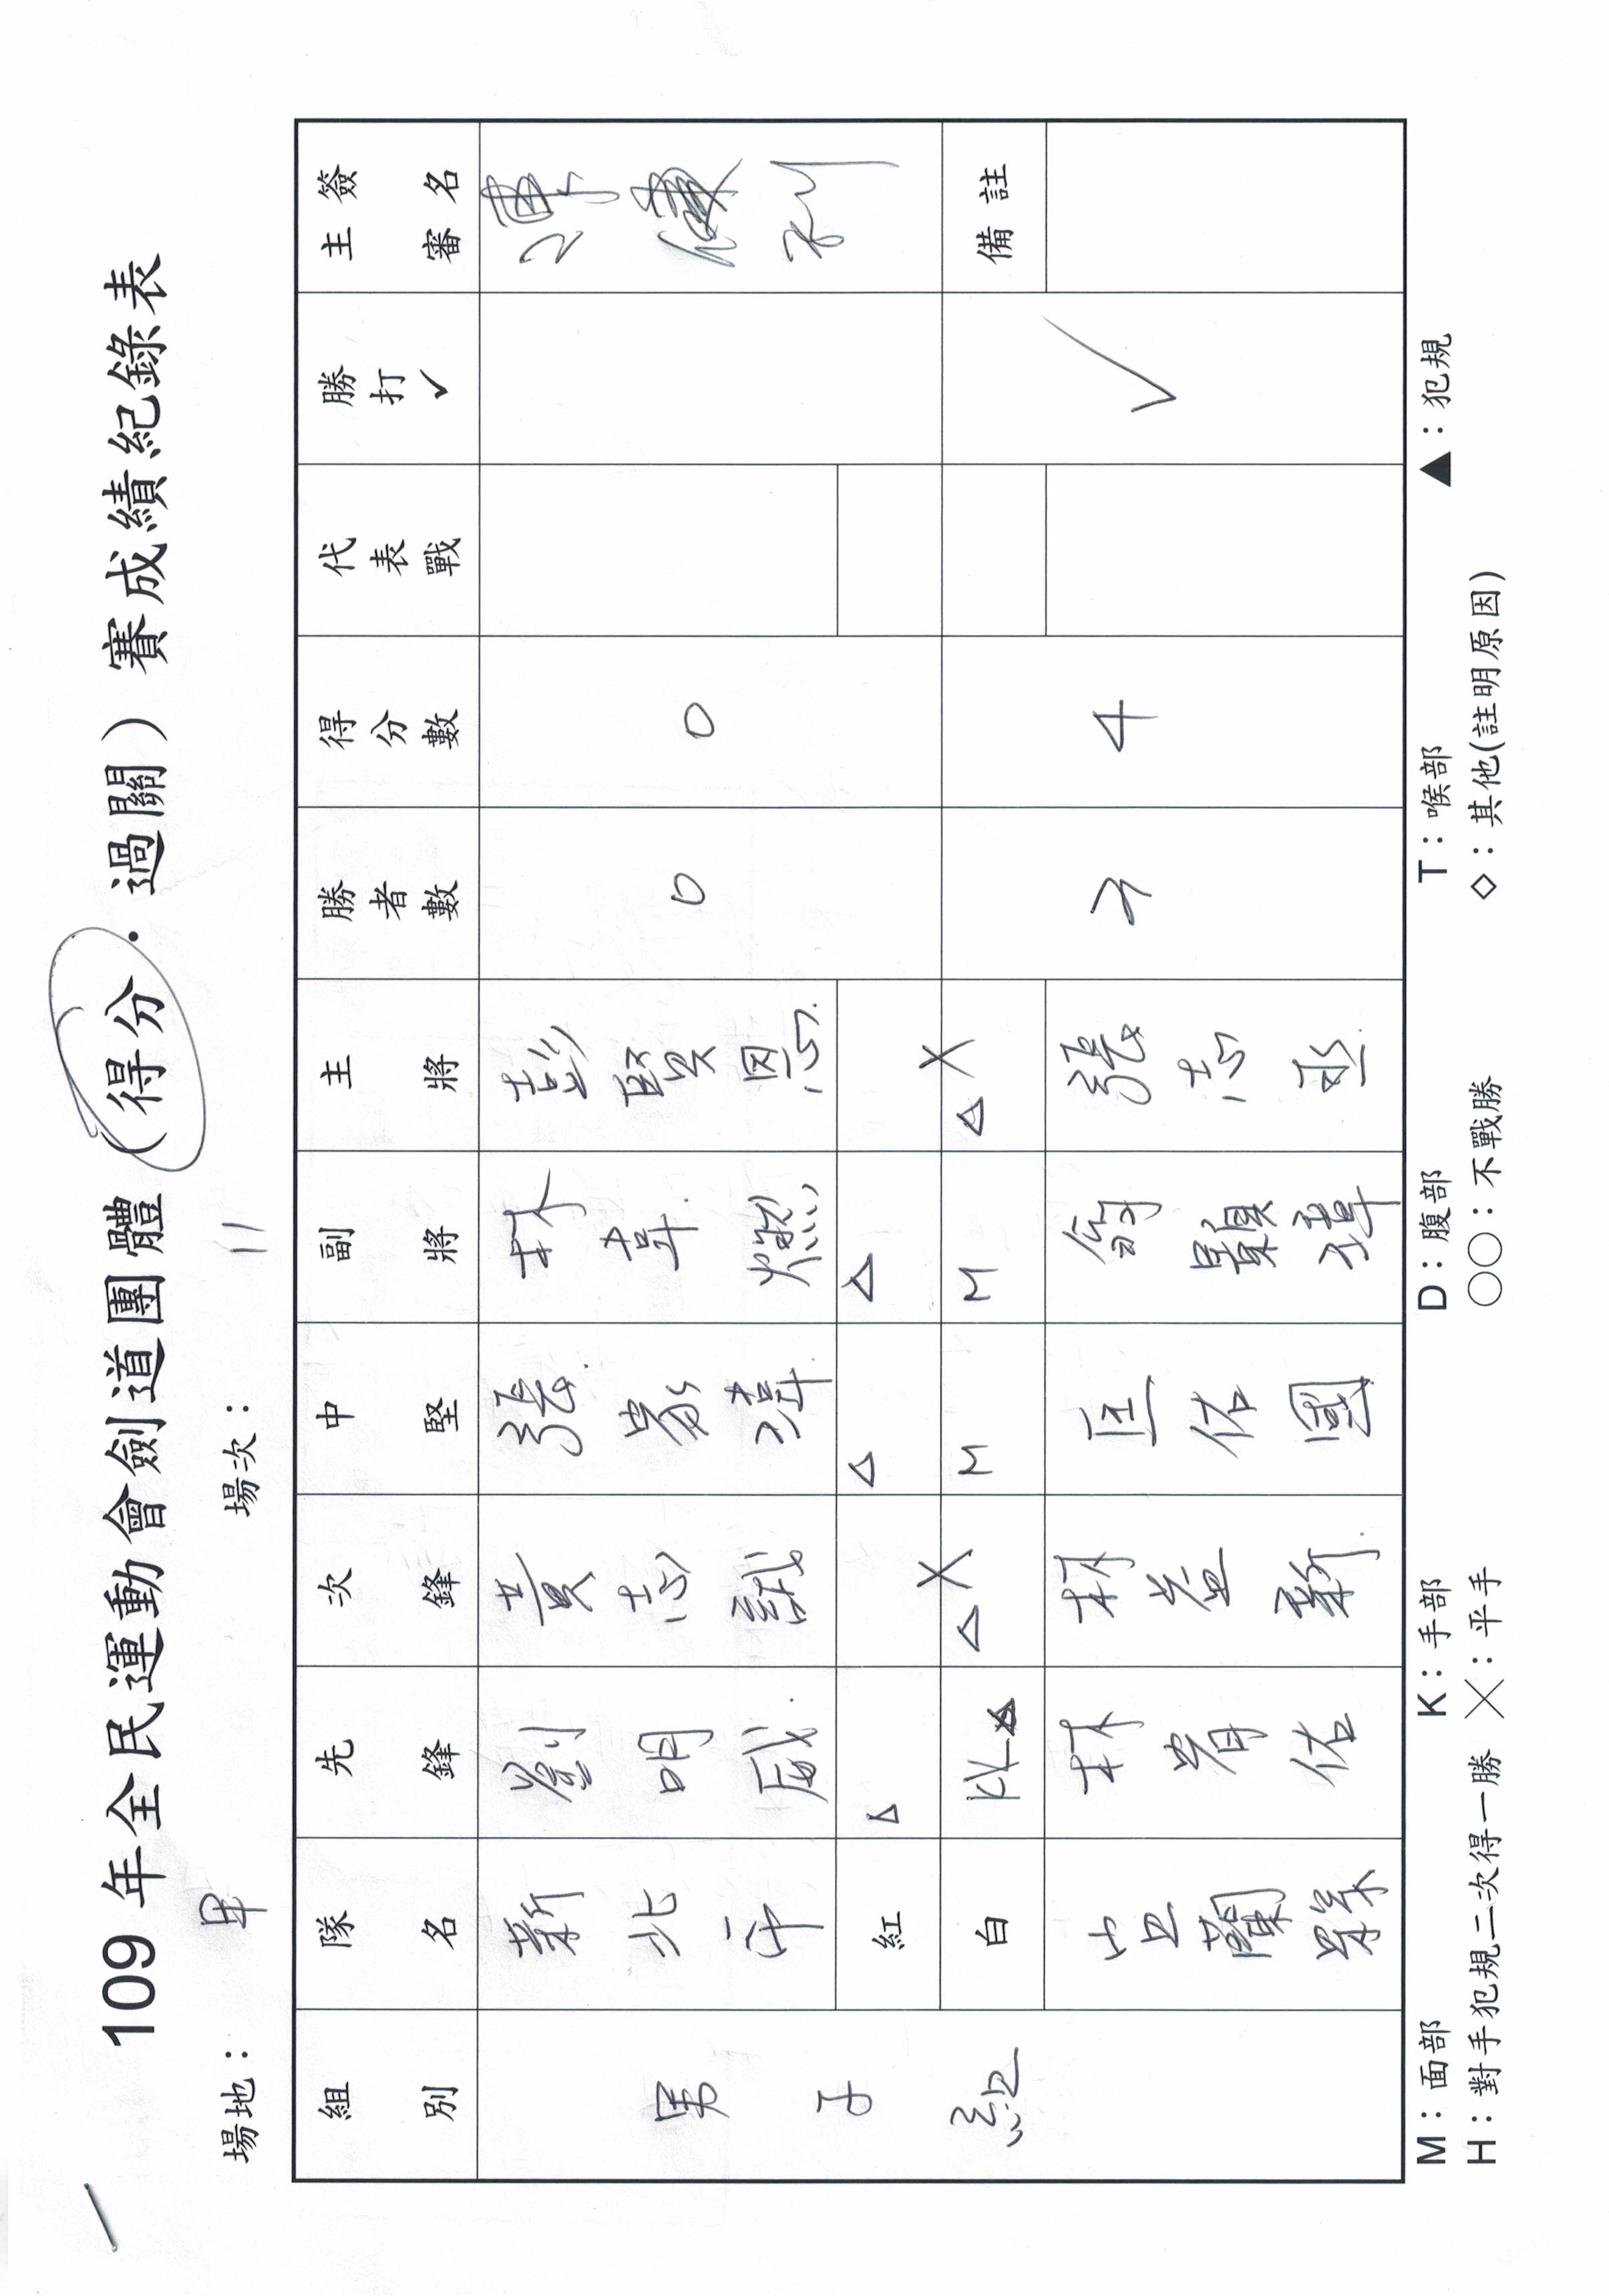 109 年全民運動會劍道團體（得分．過關）賽成績紀錄表
場地： 甲 場次： 11
組別 隊名 先鋒 次鋒 中堅 副將 主將 勝者數 得分數 代表戰 勝打✓ 主審簽名
男子組 新北市 劉明威 黃志誠 張家瑋 林韋燃 彭賢恩 0 0
紅 △ △ △
白 △ X M M △ X 備註
宜蘭縣 林睂佑 林益新 匡佑國 翁顥璋 張志丞 2 4 ✓
M：面部 K：手部 D：腹部 T：喉部 ▲：犯規
H：對手犯規二次得一勝 ╳：平手 ○○：不戰勝 ◇：其他(註明原因)